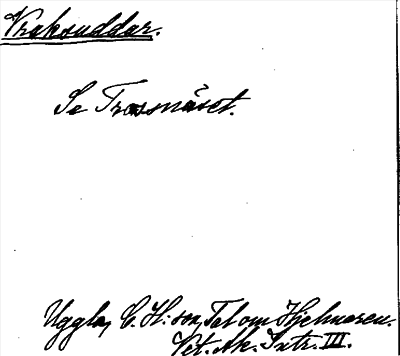 Vraksuddar.
Se Trasmåset.
Uggla, C. H:son, Tal om Hjelmaren.
Vet. Ak. Intr. III.